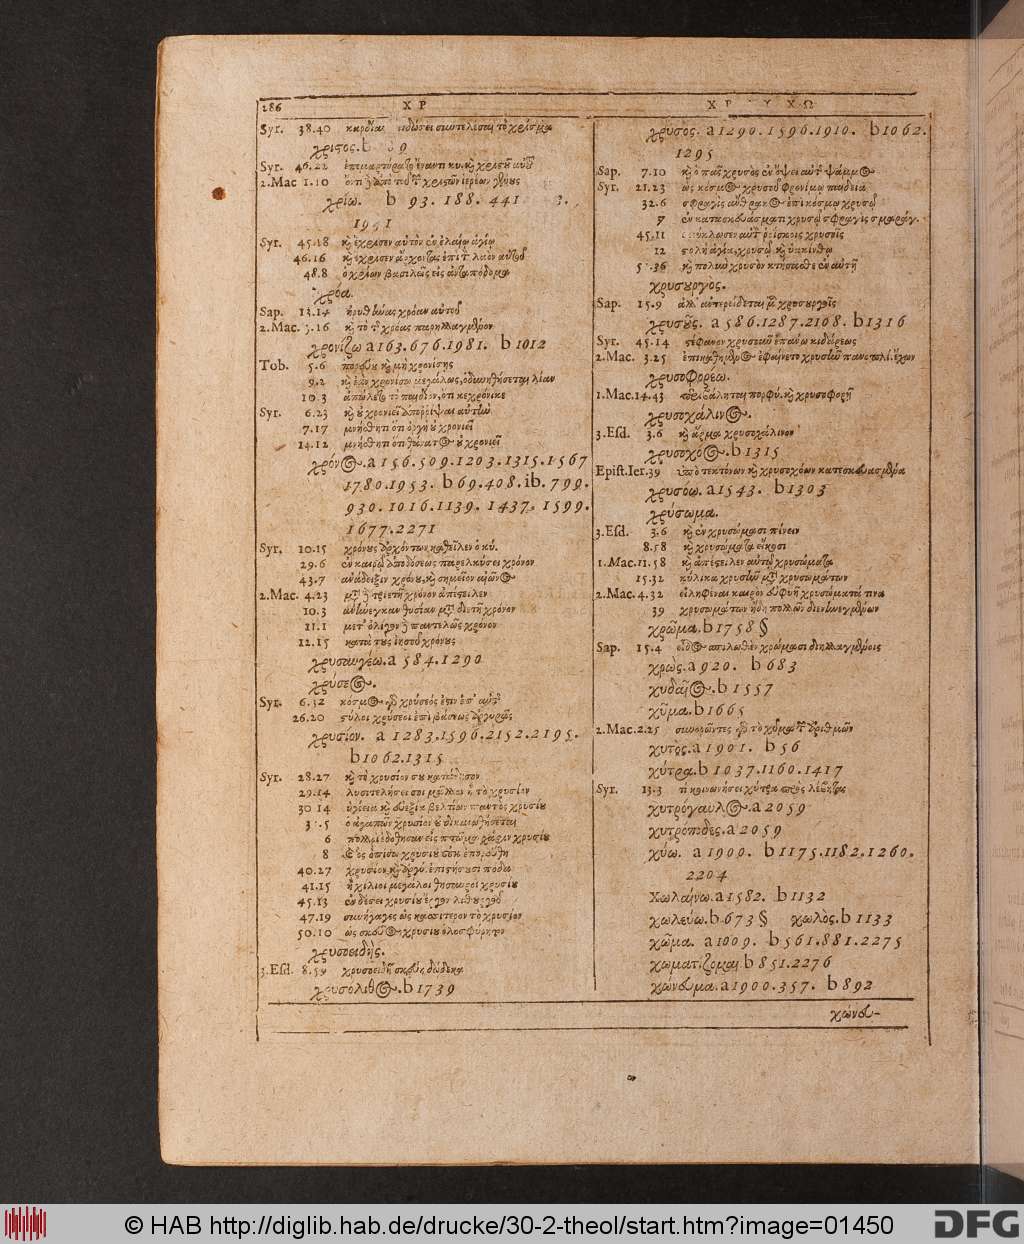 286 Χ Ρ
Syr. 38.40 καρδίαν δώσει συντελέσαι τὸ χρίσμα
χριστος. b 9
Syr. 46.22 ἐπεμαρτύρατο ἔναντι κυ. καὶ χριστοῦ αὐτοῦ
2.Mac 1.10 ὄντι δὲ ἀπὸ τοῦ τῶν χριστῶν ἱερέων γένους
χρίω. b 93. 188. 441 3.
1951
Syr. 45.18 καὶ ἔχρισεν αὐτὸν ἐν ἐλαίῳ ἁγίῳ
46.16 καὶ ἔχρισεν ἄρχοντας ἐπὶ τὸν λαὸν αὐτοῦ
48.8 ὁ χρίων βασιλεῖς εἰς ἀνταπόδομα
χρόα.
Sap. 13.14 ἐρυθήνας χρόαν αὐτοῦ
2.Mac. 3.16 καὶ τὸ τῆς χρόας παρηλλαγμένον
χρονίζω a 163.676.1981. b 1012
Tob. 5.6 πορεύου καὶ μὴ χρονίσῃς
9.2 καὶ ἐὰν χρονίσω μεγάλως, ὀδυνηθήσεται λίαν
10.3 ἀπώλετο τὸ παιδίον, ὅτι κεχρόνικε
Syr. 6.23 καὶ οὐ χρονιεῖ ἀπορρίψαι αὐτὴν
7.17 μνήσθητι ὅτι ὀργὴ οὐ χρονιεῖ
14.12 μνήσθητι ὅτι θάνατος οὐ χρονιεῖ
χρόνος. a 156.509.1203.1315.1567
1780.1953. b 69.408. ib. 799.
930. 1016.1139. 1437. 1599.
1677.2271
Syr. 10.15 χρόνους ἀρχόντων καθεῖλεν ὁ κύ.
29.6 ἐν καιρῷ ἀποδόσεως παρελκύσει χρόνον
43.7 ἀνάδειξιν χρόνου, καὶ σημεῖον αἰῶνος
2.Mac. 4.23 μετὰ δὲ τριετῆ χρόνον ἀπέστειλεν
10.3 ἀνήνεγκαν θυσίαν μετὰ διετῆ χρόνον
11.1 μετ' ὀλίγον δὲ παντελῶς χρόνον
12.15 κατὰ τοὺς ἰησοῦ χρόνους
χρυσαυγέω. a 584.1290
χρύσεος.
Syr. 6.32 κόσμος γὰρ χρύσεός ἐστιν ἐπ' αὐτῆς
26.20 στύλοι χρύσεοι ἐπὶ βάσεως ἀργυρᾶς
χρυσίον. a 1283.1596.2152.2195.
b 1062.1315
Syr. 28.27 καὶ τὸ χρυσίον σου κατάδησον
29.14 λυσιτελήσει σοι μᾶλλον ἢ τὸ χρυσίον
30 14 ὑγίεια καὶ εὐεξία βελτίων παντὸς χρυσίου
5 ὁ ἀγαπῶν χρυσίον οὐ δικαιωθήσεται
6 πολλοὶ ἐδόθησαν εἰς πτῶμα χάριν χρυσίου
8 ὃς ὀπίσω χρυσίου οὐκ ἐπορεύθη
40.27 χρυσίον καὶ ἀργύριον ἐπιστήσουσι πόδα
41.15 ἢ χίλιοι μεγάλοι θησαυροὶ χρυσίου
45.13 ἐν δέσει χρυσίου ἔργον λιθουργοῦ
47.19 συνήγαγες ὡς κασσίτερον τὸ χρυσίον
50.10 ὡς σκεῦος χρυσίου ὁλοσφύρητον
χρυσοειδής.
3.Esd. 8.59 χρυσοειδῆ σκεύη δώδεκα
χρυσόλιθος. b 1739
Χ Ρ Υ Χ Ω
χρυσὸς. a 1290.1596.1910. b 1062.
1295
Sap. 7.10 καὶ ὁ πᾶς χρυσὸς ἐν ὄψει αὐτῆς ψάμμος
Syr. 21.23 ὡς κόσμος χρυσοῦς φρονίμῳ παιδεία
32.6 σφραγὶς ἄνθρακος ἐπὶ κόσμῳ χρυσῷ
7 ἐν κατασκευάσματι χρυσῷ σφραγὶς σμαράγ.
45.11 ἐκύκλωσεν αὐτὸν ῥοΐσκοις χρυσοῖς
12 στολῇ ἁγίᾳ, χρυσῷ καὶ ὑακίνθῳ
51.36 καὶ πολὺν χρυσὸν κτήσασθε ἐν αὐτῇ
χρυσουργος.
Sap. 15.9 ἀλλ' ἀντερείδεται μὲν χρυσουργοῖς
χρυσοῦς. a 586.1287.2108. b 1316
Syr. 45.14 στέφανον χρυσοῦν ἐπάνω κιδάρεως
2.Mac. 3.25 ἐπικαθήμενος ἐφαίνετο χρυσῆν πανοπλί. ἔχων
χρυσοφορέω.
1.Mac. 14.43 περιβάληται πορφύ. καὶ χρυσοφορῇ
χρυσοχάλινος.
3.Esd. 3.6 καὶ ἅρμα χρυσοχάλινον
χρυσοχόος. b 1315
Epist.Ier. 39 ὑπὸ τεκτόνων καὶ χρυσοχόων κατεσκευασμένα
χρυσόω. a 1543. b 1303
χρύσωμα.
3.Esd. 3.6 καὶ ἐν χρυσώμασι πίνειν
8.58 καὶ χρυσώματα εἴκοσι
1.Mac. 11.58 καὶ ἀπέστειλεν αὐτῷ χρυσώματα
15.32 κύλικα χρυσῶν μετὰ χρυσωμάτων
2.Mac. 4.32 εἰληφέναι καιρὸν εὐφυῆ χρυσώματά τινα
39 χρυσωμάτων ἤδη πολλῶν διενηνεγμένων
χρῶμα. b 1758 §
Sap. 15.4 εἶδος σπιλωθὲν χρώμασι διηλλαγμένοις
χρὼς. a 920. b 683
χυδαῖος. b 1557
χῦμα. b 1665
2.Mac. 2.25 συνορῶντες γὰρ τὸ χύμα τῶν ἀριθμῶν
χυτὸς. a 1901. b 56
χύτρα. b 1037.1160.1417
Syr. 13.3 τί κοινωνήσει χύτρα πρὸς λέβητα
χυτρόγαυλος. a 2059
χυτρόποδες. a 2059
χύω. a 1900. b 1175.1182.1260.
2204
χωλαίνω. a 1582. b 1132
χωλεύω. b 673 § χωλὸς. b 1133
χῶμα. a 1009. b 561.881.2275
χωματίζομαι b 851.2276
χώνευμα. a 1900.357. b 892
χώνευ-
© HAB http://diglib.hab.de/drucke/30-2-theol/start.htm?image=01450
DFG